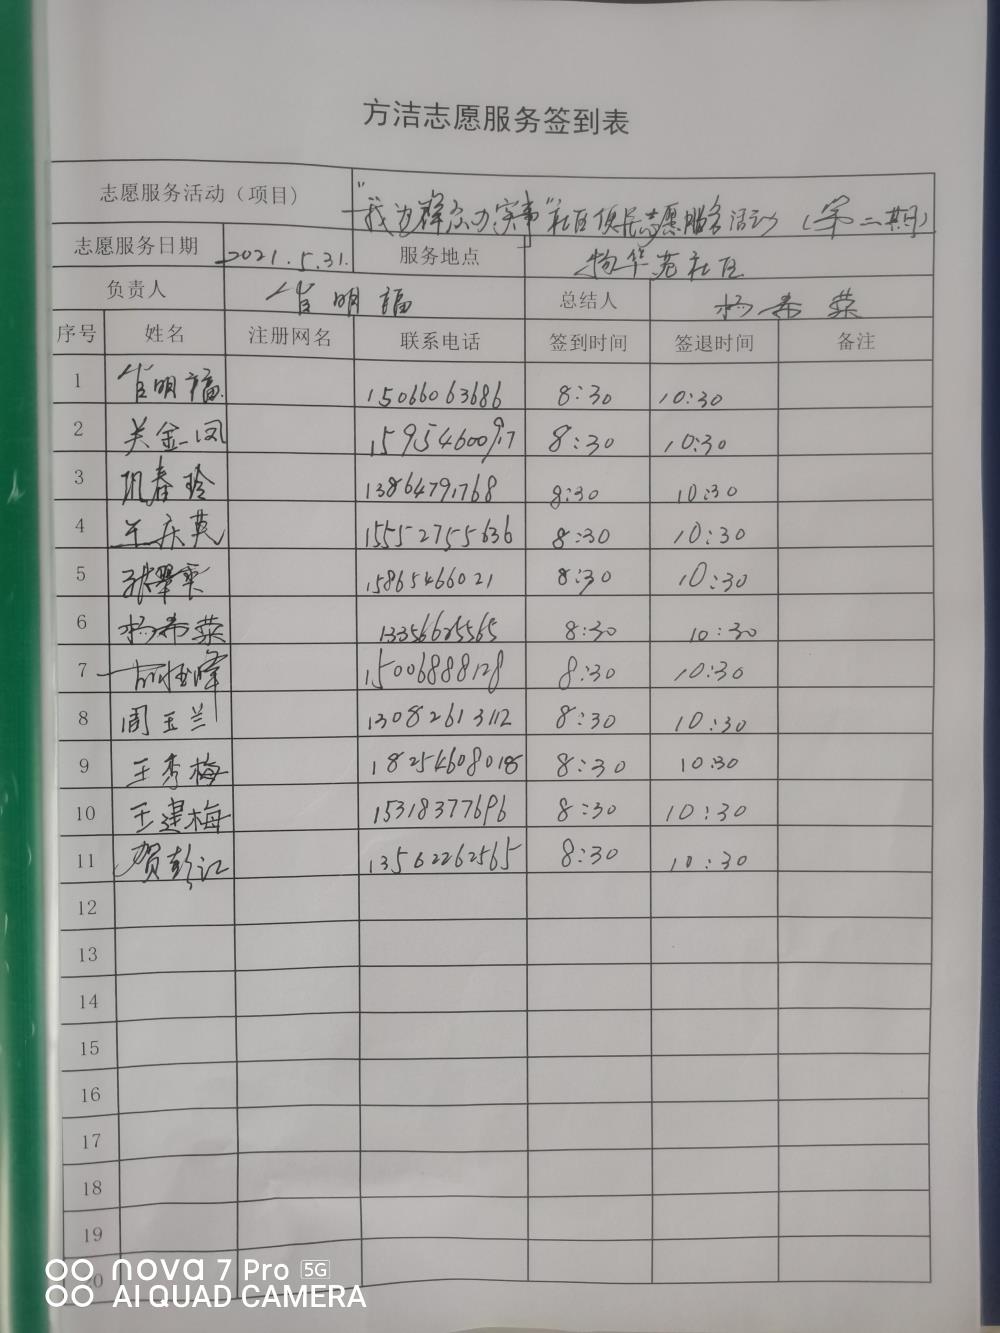 方洁志愿服务签到表
志愿服务活动（项目） "我为群众办实事"社区便民志愿服务活动（第二期）
志愿服务日期 2021.5.31. 服务地点 物华苑社区
负责人 肖明福 总结人 杨希荣
序号 姓名 注册网名 联系电话 签到时间 签退时间 备注
1 肖明福 15066063686 8:30 10:30
2 关金凤 15954600917 8:30 10:30
3 巩春玲 13864791768 8:30 10:30
4 王庆英 15552755636 8:30 10:30
5 张翠 15865466021 8:30 10:30
6 杨希荣 13356625565 8:30 10:30
7 15006888128 8:30 10:30
8 周玉兰 13082613112 8:30 10:30
9 王秀梅 18254608018 8:30 10:30
10 王建梅 15318377696 8:30 10:30
11 贺彭江 13562262565 8:30 10:30
12
13
14
15
16
17
18
19
20
nova 7 Pro 5G
AI QUAD CAMERA